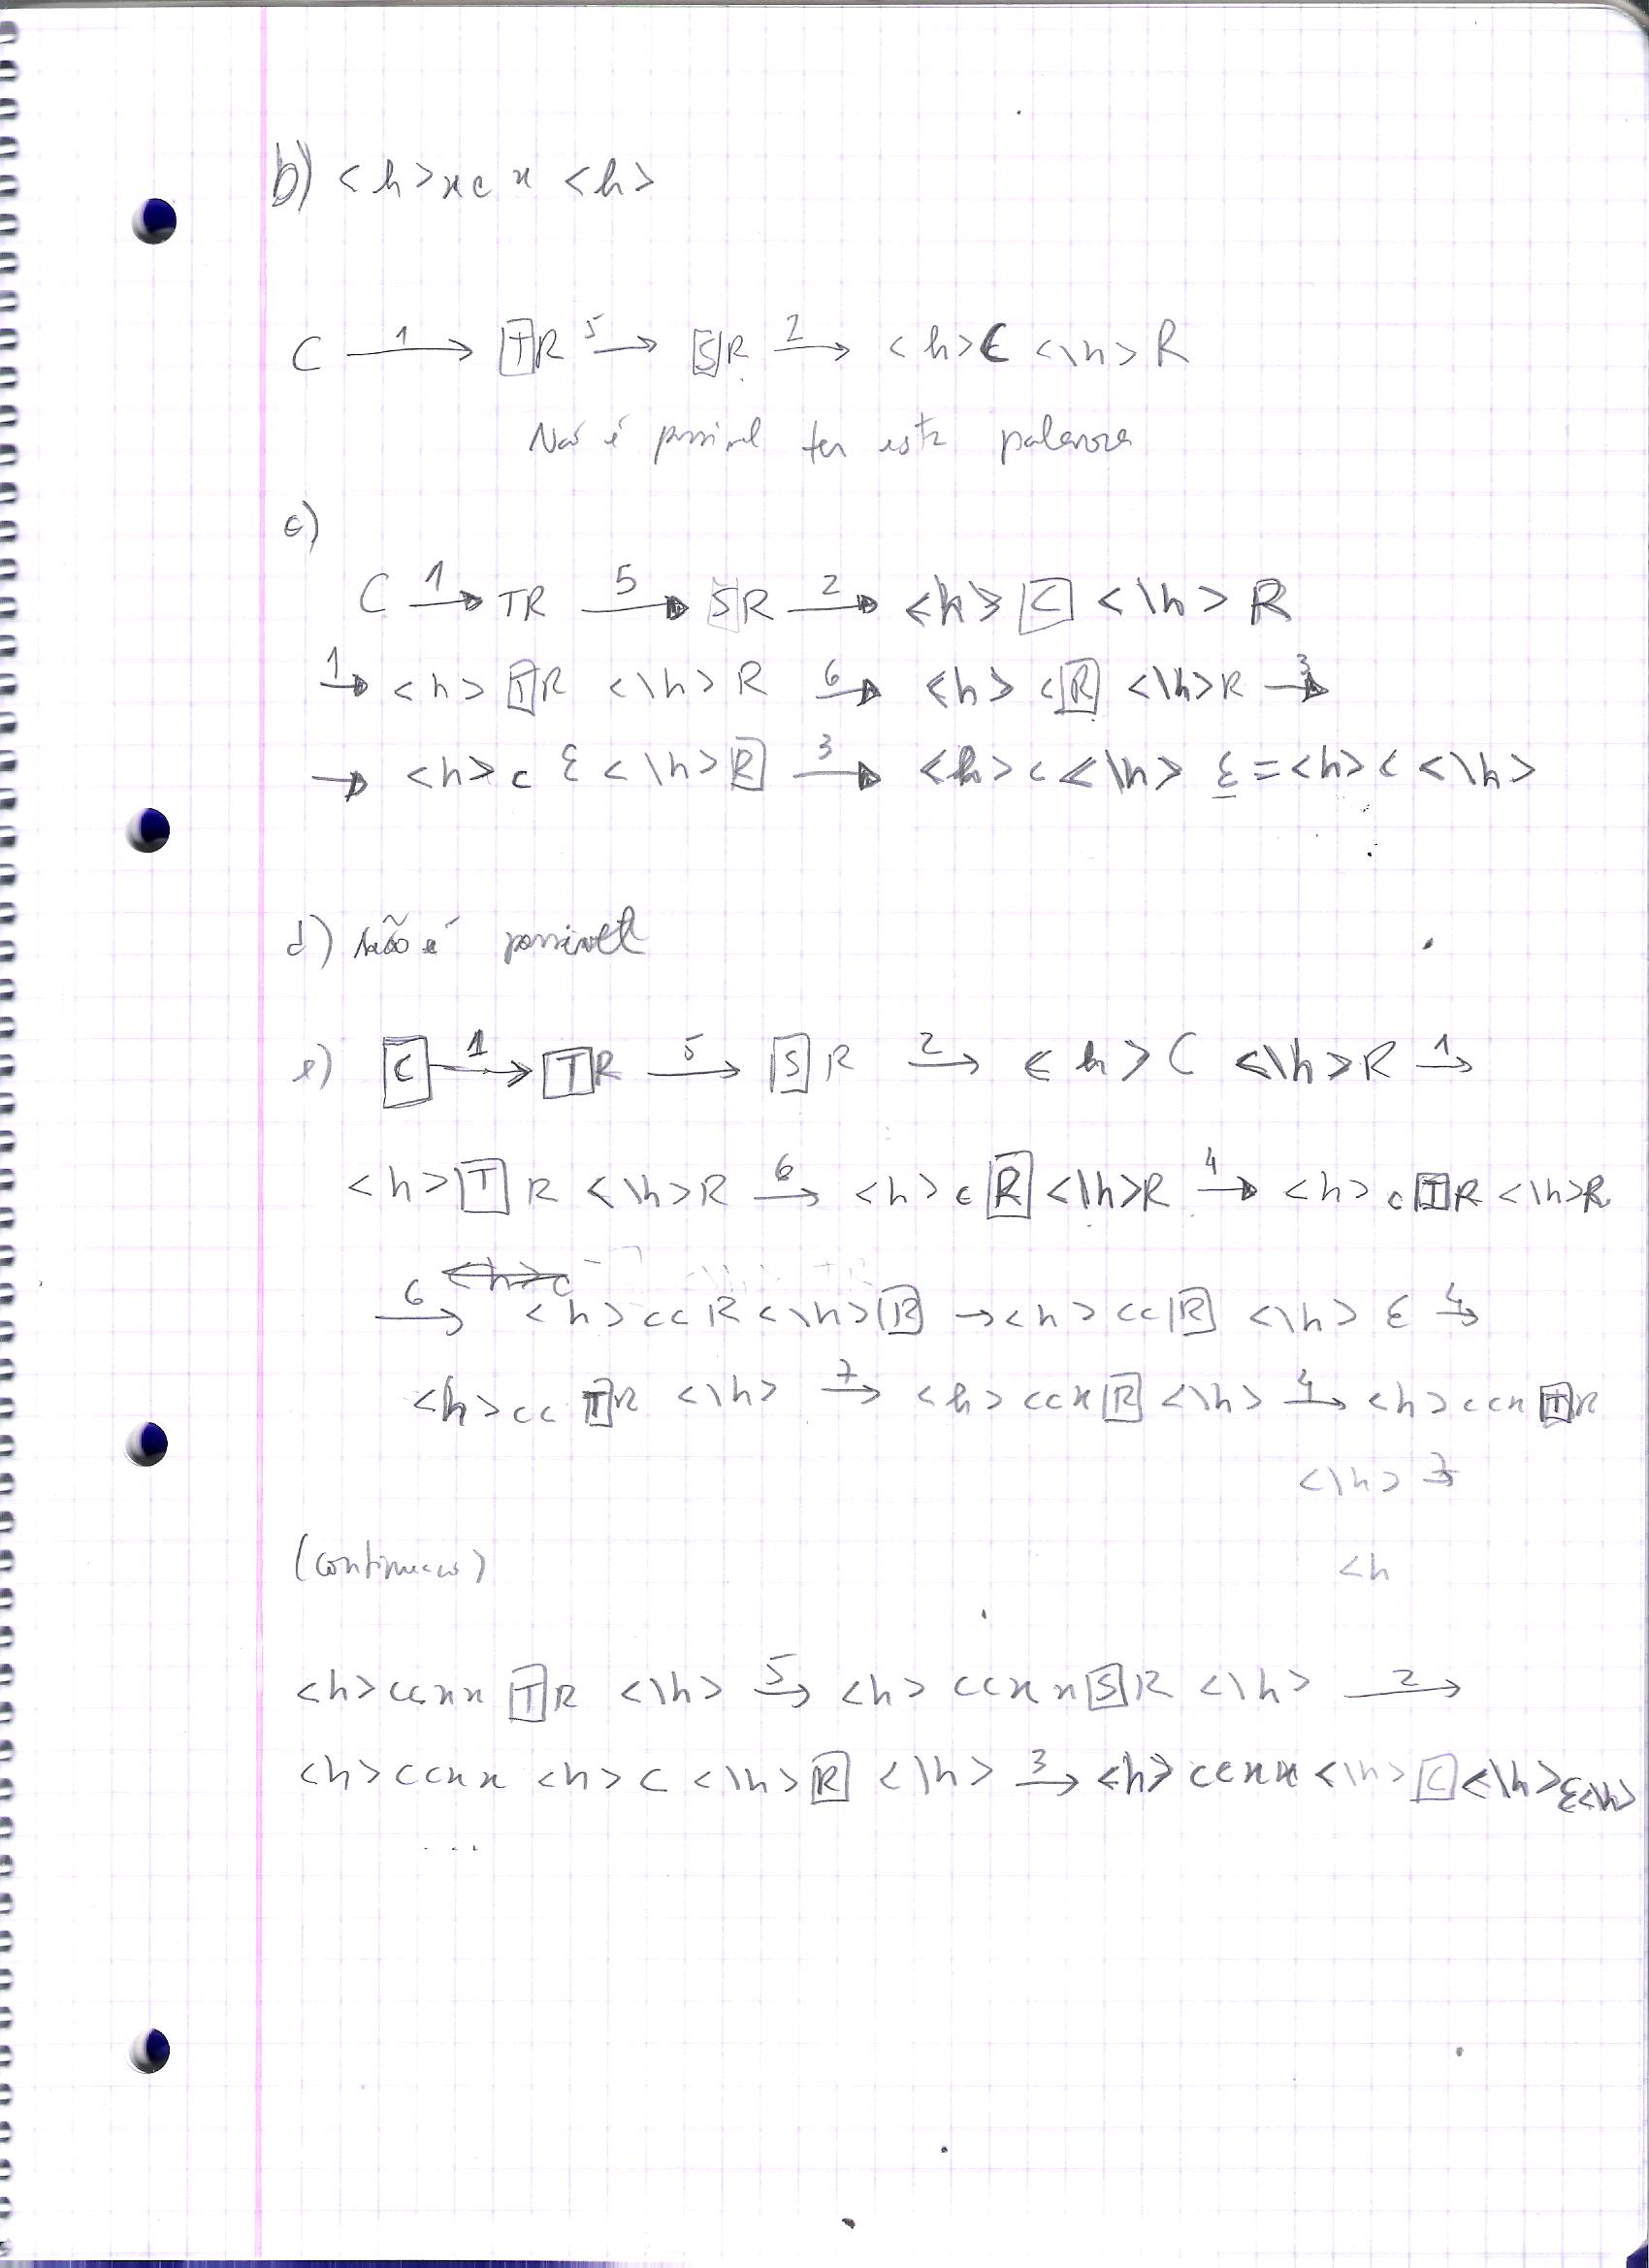 b) <h>xcx <h>
C 1→ TR 5→ SR 2→ <h>C <\h>R
Não é possível ter esta palavra
c)
C 1→ TR 5→ SR 2→ <h> C <\h> R
1→ <h> TR <\h>R 6→ <h> cR <\h>R 3→
→ <h>c ε <\h>R 3→ <h>c <\h> ε = <h>c <\h>
d) não é possivel
e) C 1→ TR 5→ S R 2→ <h> C <\h>R 1→
<h>T R <\h>R 6→ <h>c R <\h>R 4→ <h>c TR <\h>R
<h>c
6→ <h>ccR<\h>R → <h>ccR <\h> ε 4→
<h>cc TR <\h> 7→ <h>ccxR <\h> 4→ <h>ccx TR
<\h> 7→
(continuacao) <h
<h>ccxx TR <\h> 5→ <h>ccxx SR <\h> 2→
<h>ccxx <h>C <\h>R <\h> 3→ <h>ccxx<\h> C <\h>ε<\h>
...